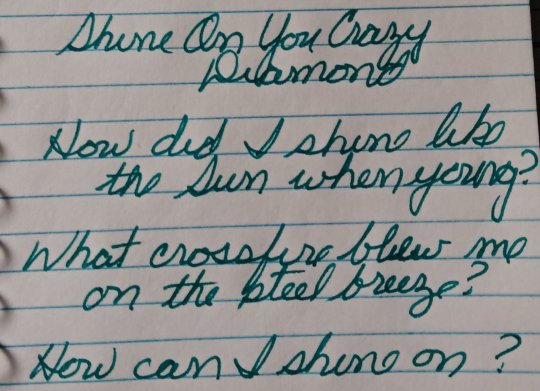 Shine On You Crazy
Diamond
How did I shine like
the Sun when young?
What crossfire blew me
on the steel breeze?
How can I shine on ?